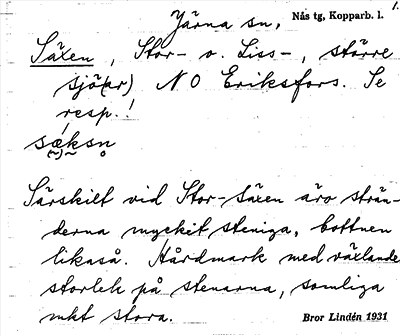 Järna sn, Nås tg, Kopparb. l. 1.
Säxen, Stor- o. Liss-, större
sjö(ar) NO Eriksfors. Se
resp.!
sæksn̥
Särskilt vid Stor-Säxen äro strän-
derna mycket steniga, bottnen
likaså. Hårdmark med växlande
storlek på stenarna, somliga
mkt stora. Bror Lindén 1931